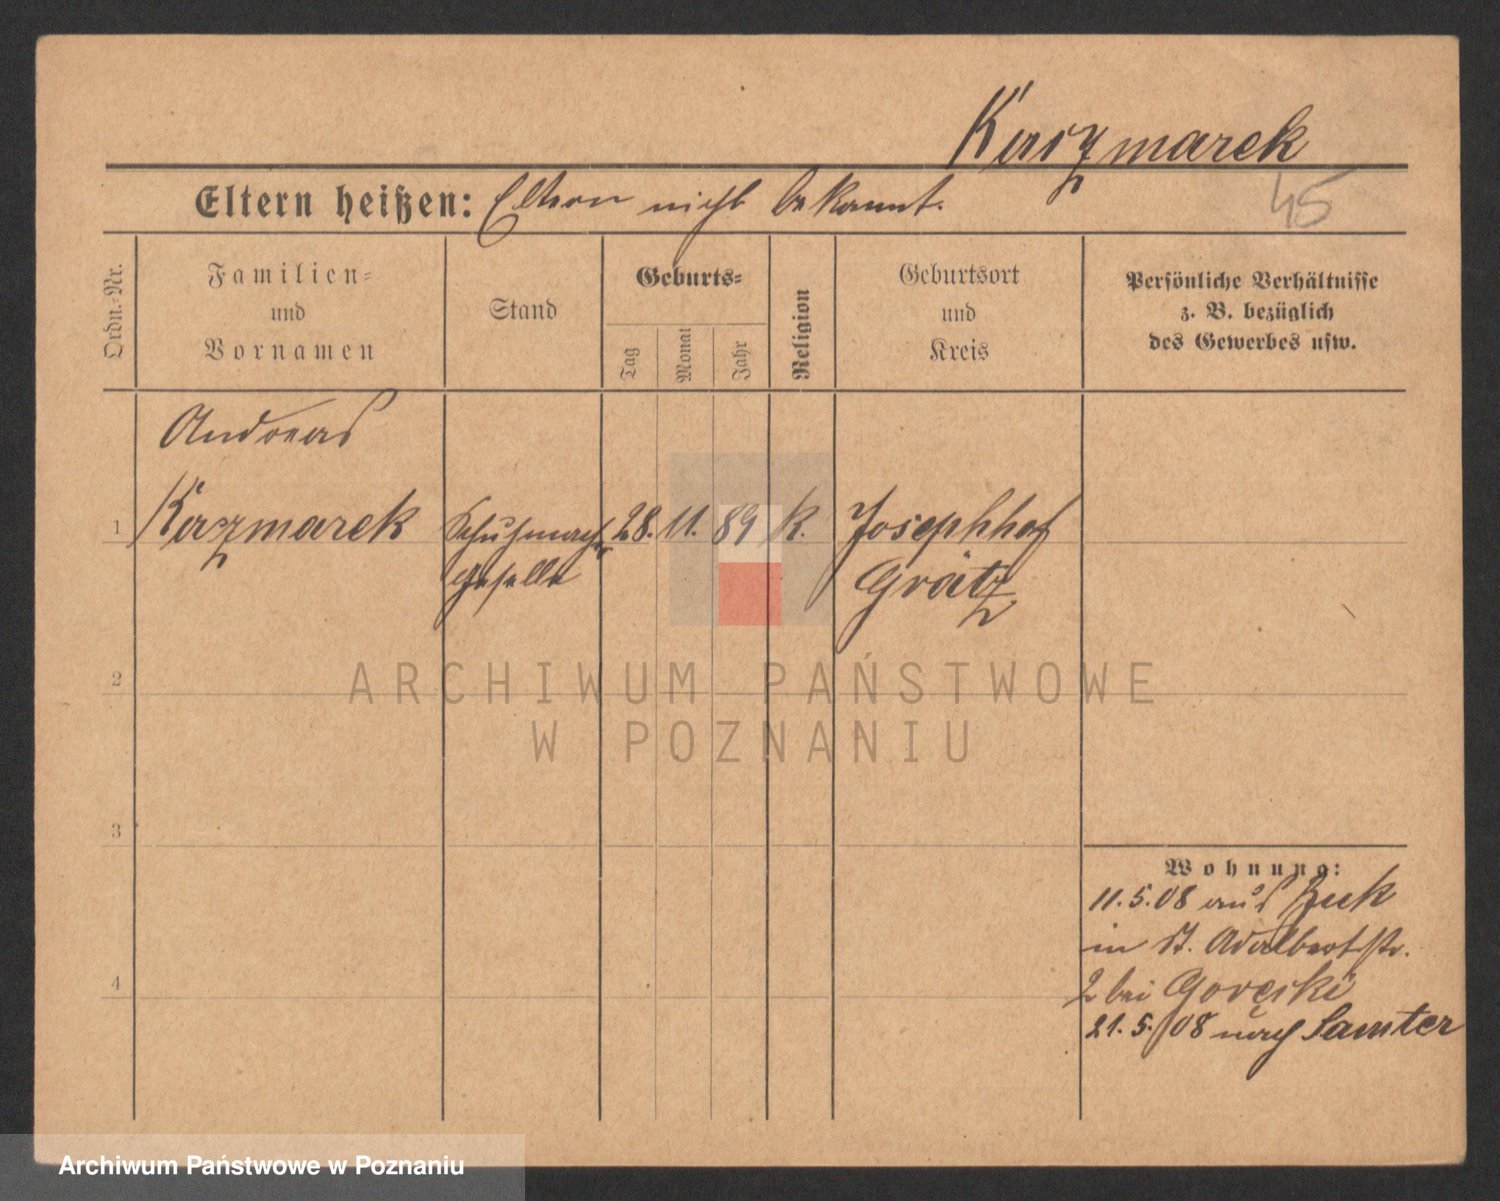 Kaczmarek
Eltern heißen: Eltern nicht bekannt.
45
Ordn.-Nr.
Familien-
und
Vornamen
Stand
Geburts-
Tag
Monat
Jahr
Religion
Geburtsort
und
Kreis
Persönliche Verhältnisse
z. B. bezüglich
des Gewerbes usw.
Andreas
1 Kaczmarek Schuhmacher 28. 11. 89 K. Josephhof
geselle Grätz
2
ARCHIWUM PAŃSTWOWE
W POZNANIU
3
Wohnung:
11.5.08 aus
in St. Adalbertstr.
4
2 bei Gorecki
21.5.08 nach Samter
Archiwum Państwowe w Poznaniu